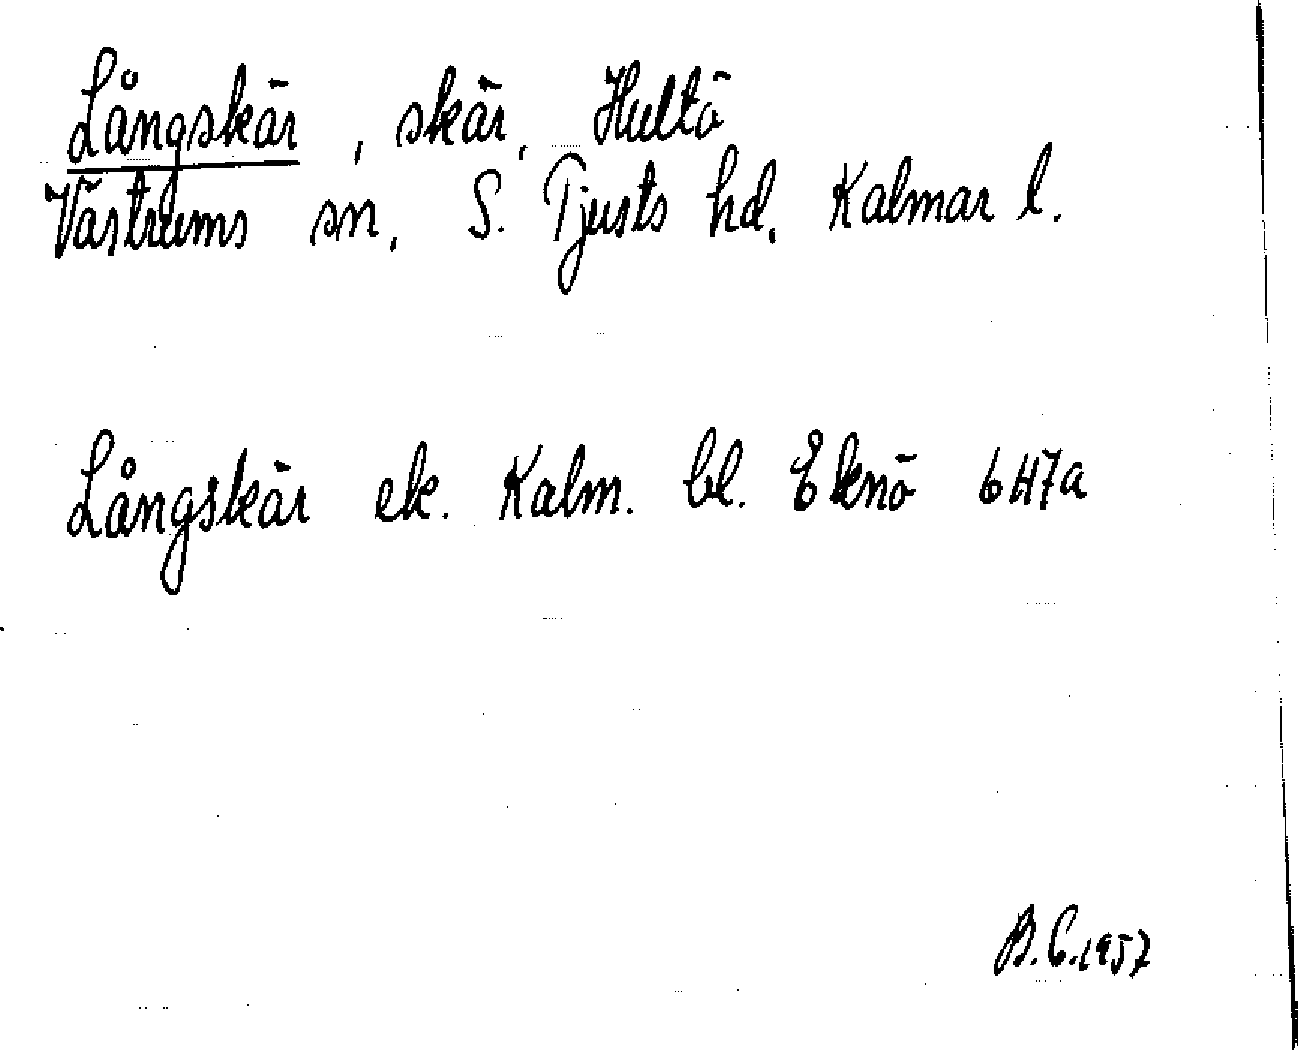 Långskär, skär, Hultö
Västrums sn. S. Tjusts hd. Kalmar l.
Långskär ek. Kalm. bl. Eknö 6H7a
B.C.1957